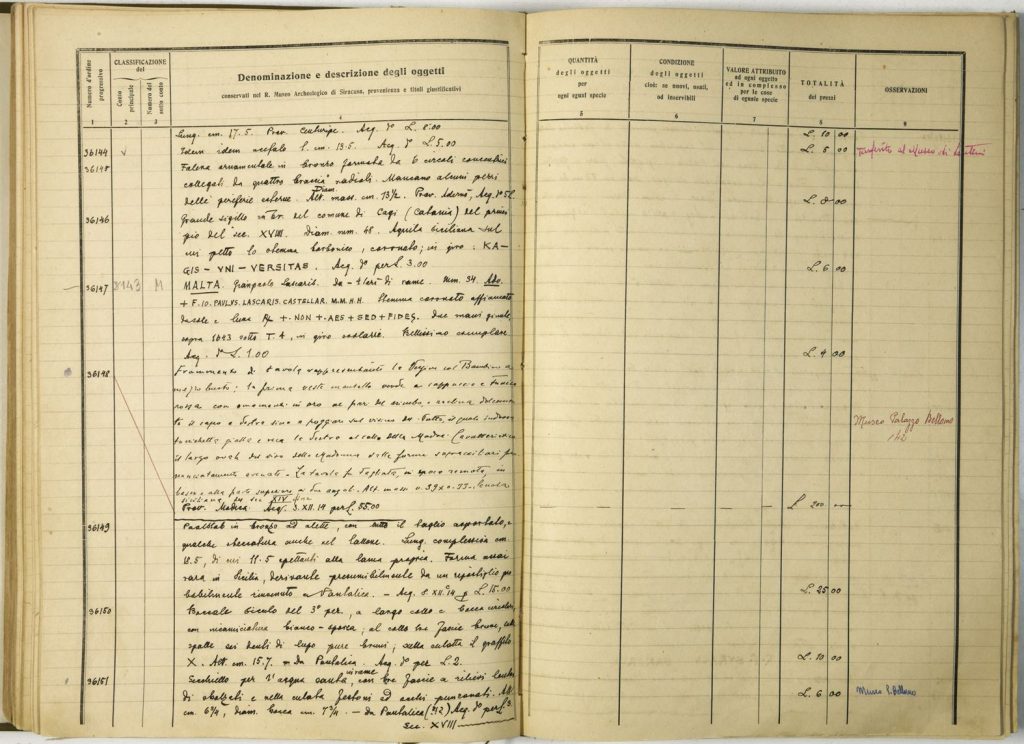 Numero d'ordine progressivo
CLASSIFICAZIONE del
Conto principale
Numero del sotto conto
Denominazione e descrizione degli oggetti
conservati nel R. Museo Archeologico di Siracusa, provenienza e titoli giustificativi
1 2 3 4
Lung. cm. 17.5. Prov. Centuripe. Acq. L. 8.00
36144 v Idem idem acefalo l. cm. 13.5. Acq. L. 5.00
36145 Falera ornamentale in bronzo formata da 6 circoli concentrici
collegati da quattro braccia radiali. Mancano alcuni pezzi
delle periferie esterne. Diam. mass. cm. 13½. Prov. Adernò, Acq.
36146 Grande sigillo in br. del comune di Cagi (Catania) del princi
pio del sec. XVIII. Diam. mm. 48. Aquila siciliana sul
cui petto lo stemma borbonico, coronato; in giro: KA-
GIS-VNI-VERSITAS. Acq. per L. 3.00
36147 8143 M MALTA. Gianpaolo Lascaris. Da 4 tarì di rame. mm. 34.
+ F. IO. PAVLVS. LASCARIS. CASTELLAR. M. M. H. H. Stemma coronato affiancato
da sole e luna + NON + AES + SED + FIDES. Due mani giunte
sopra 1643 sotto T. 4, in giro scolario. Bellissimo esemplare
Acq. L. 1.00
36148 Frammento di tavola rappresentante la Vergine col Bambino a
mezzo busto; la prima veste mantello verde a cappuccio e tunica
rossa con ornamenti in oro
to il capo a destra sino a poggiar sul viso del Putto, il quale indossa
tunichetta gialla e reca la destra al collo della Madre. Caratteristico
il largo ovale del viso della Madonna dalle forme sopracciliari
nunciatamente arcuate. La tavola fu tagliata, in epoca remota, in
basso e alla parte superiore a due angoli. Alt. mass. 0.39 x 0.33. Scuola
siciliana del sec XIV fine
Prov. Modica. Acq. 3. XII. 14 per L. 55.00
36149 Paalstab in bronzo ad alette, con tutto il taglio asportato, e
qualche sbreccatura anche nel tallone. Lung. complessiva cm.
18.5, di cui 11.5 spettanti alla lama propria. Forma assai
rara in Sicilia, derivante presumibilmente da un ripostiglio pro
babilmente rinvenuto a Pantalica. - Acq. 8 XII. 14 p. L. 15.00
36150 Boccale siculo del 3° per., a lungo collo e bocca circolare,
con incamiciatura bianco-sporca; al collo tre fascie brune, sulle
spalle sei denti di lupo pure bruni; sulla culatta il graffito
X. Alt. cm. 15.7. da Pantalica. Acq. per L. 2.
36151 Secchiello per l'acqua santa, in rame, con tre fascie a rilievi
di e nella culata festoni ad archi punzonati. Alt.
cm. 6¾, diam. bocca cm. 7¾. - da Pantalica (?) Acq. per L. 3.
Sec. XVIII
QUANTITÀ degli oggetti per ogni singol specie
CONDIZIONE degli oggetti cioè: se nuovi, usati, od inservibili
VALORE ATTRIBUITO ad ogni oggetto ed in complesso per le cose di eguale specie
TOTALITÀ dei prezzi
OSSERVAZIONI
5 6 7 8 9
L. 10 00
L. 5 00 Trasferito al Museo di Lentini
L. 8 00
L. 6 00
L. 4 00
Museo Palazzo Bellomo
L. 200
L. 25 00
L. 10 00
L. 6 00 Museo P. Bellomo